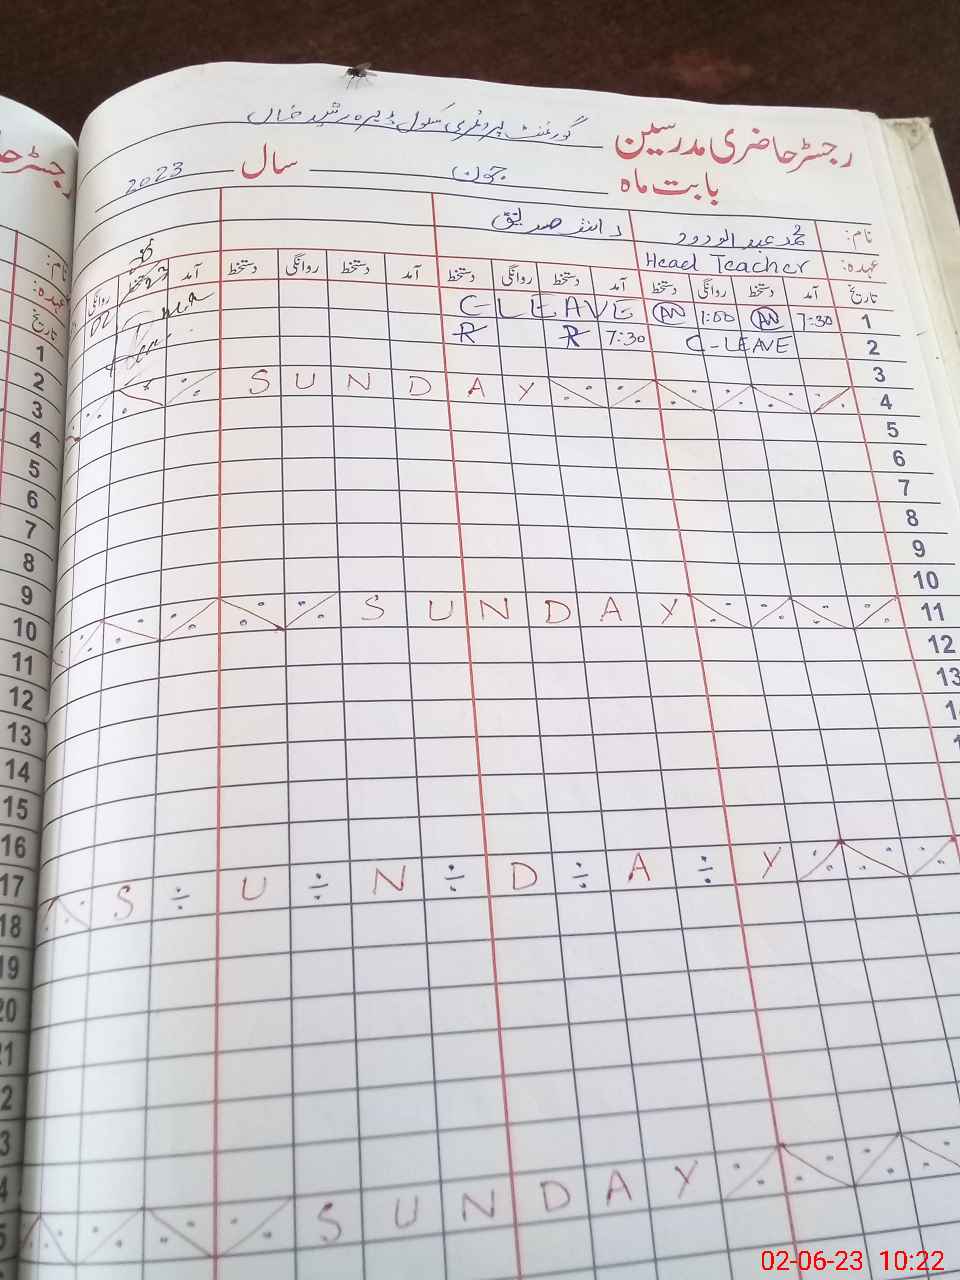 گورنمنٹ پرائمری سکول ڈیرہ رشید خان
رجسٹر حاضری مدرسین
بابت ماہ جون سال 2023
نام: محمد عبدالودود صدیق
عہدہ: Head Teacher
تاریخ آمد دستخط روانگی دستخط آمد دستخط روانگی دستخط آمد دستخط روانگی دستخط آمد دستخط روانگی
1 7:30 AW 1:00 AW C LEAVE
2 C-LEAVE 7:30 R R
3
4 SUNDAY
5
6
7
8
9
10
11 SUNDAY
12
13
S ÷ U ÷ N ÷ D ÷ A ÷ Y
SUNDAY
رجسٹر
نام:
عہدہ:
تاریخ
1
2
3
4
5
6
7
8
9
10
11
12
13
14
15
16
17
18
19
20
02-06-23 10:22